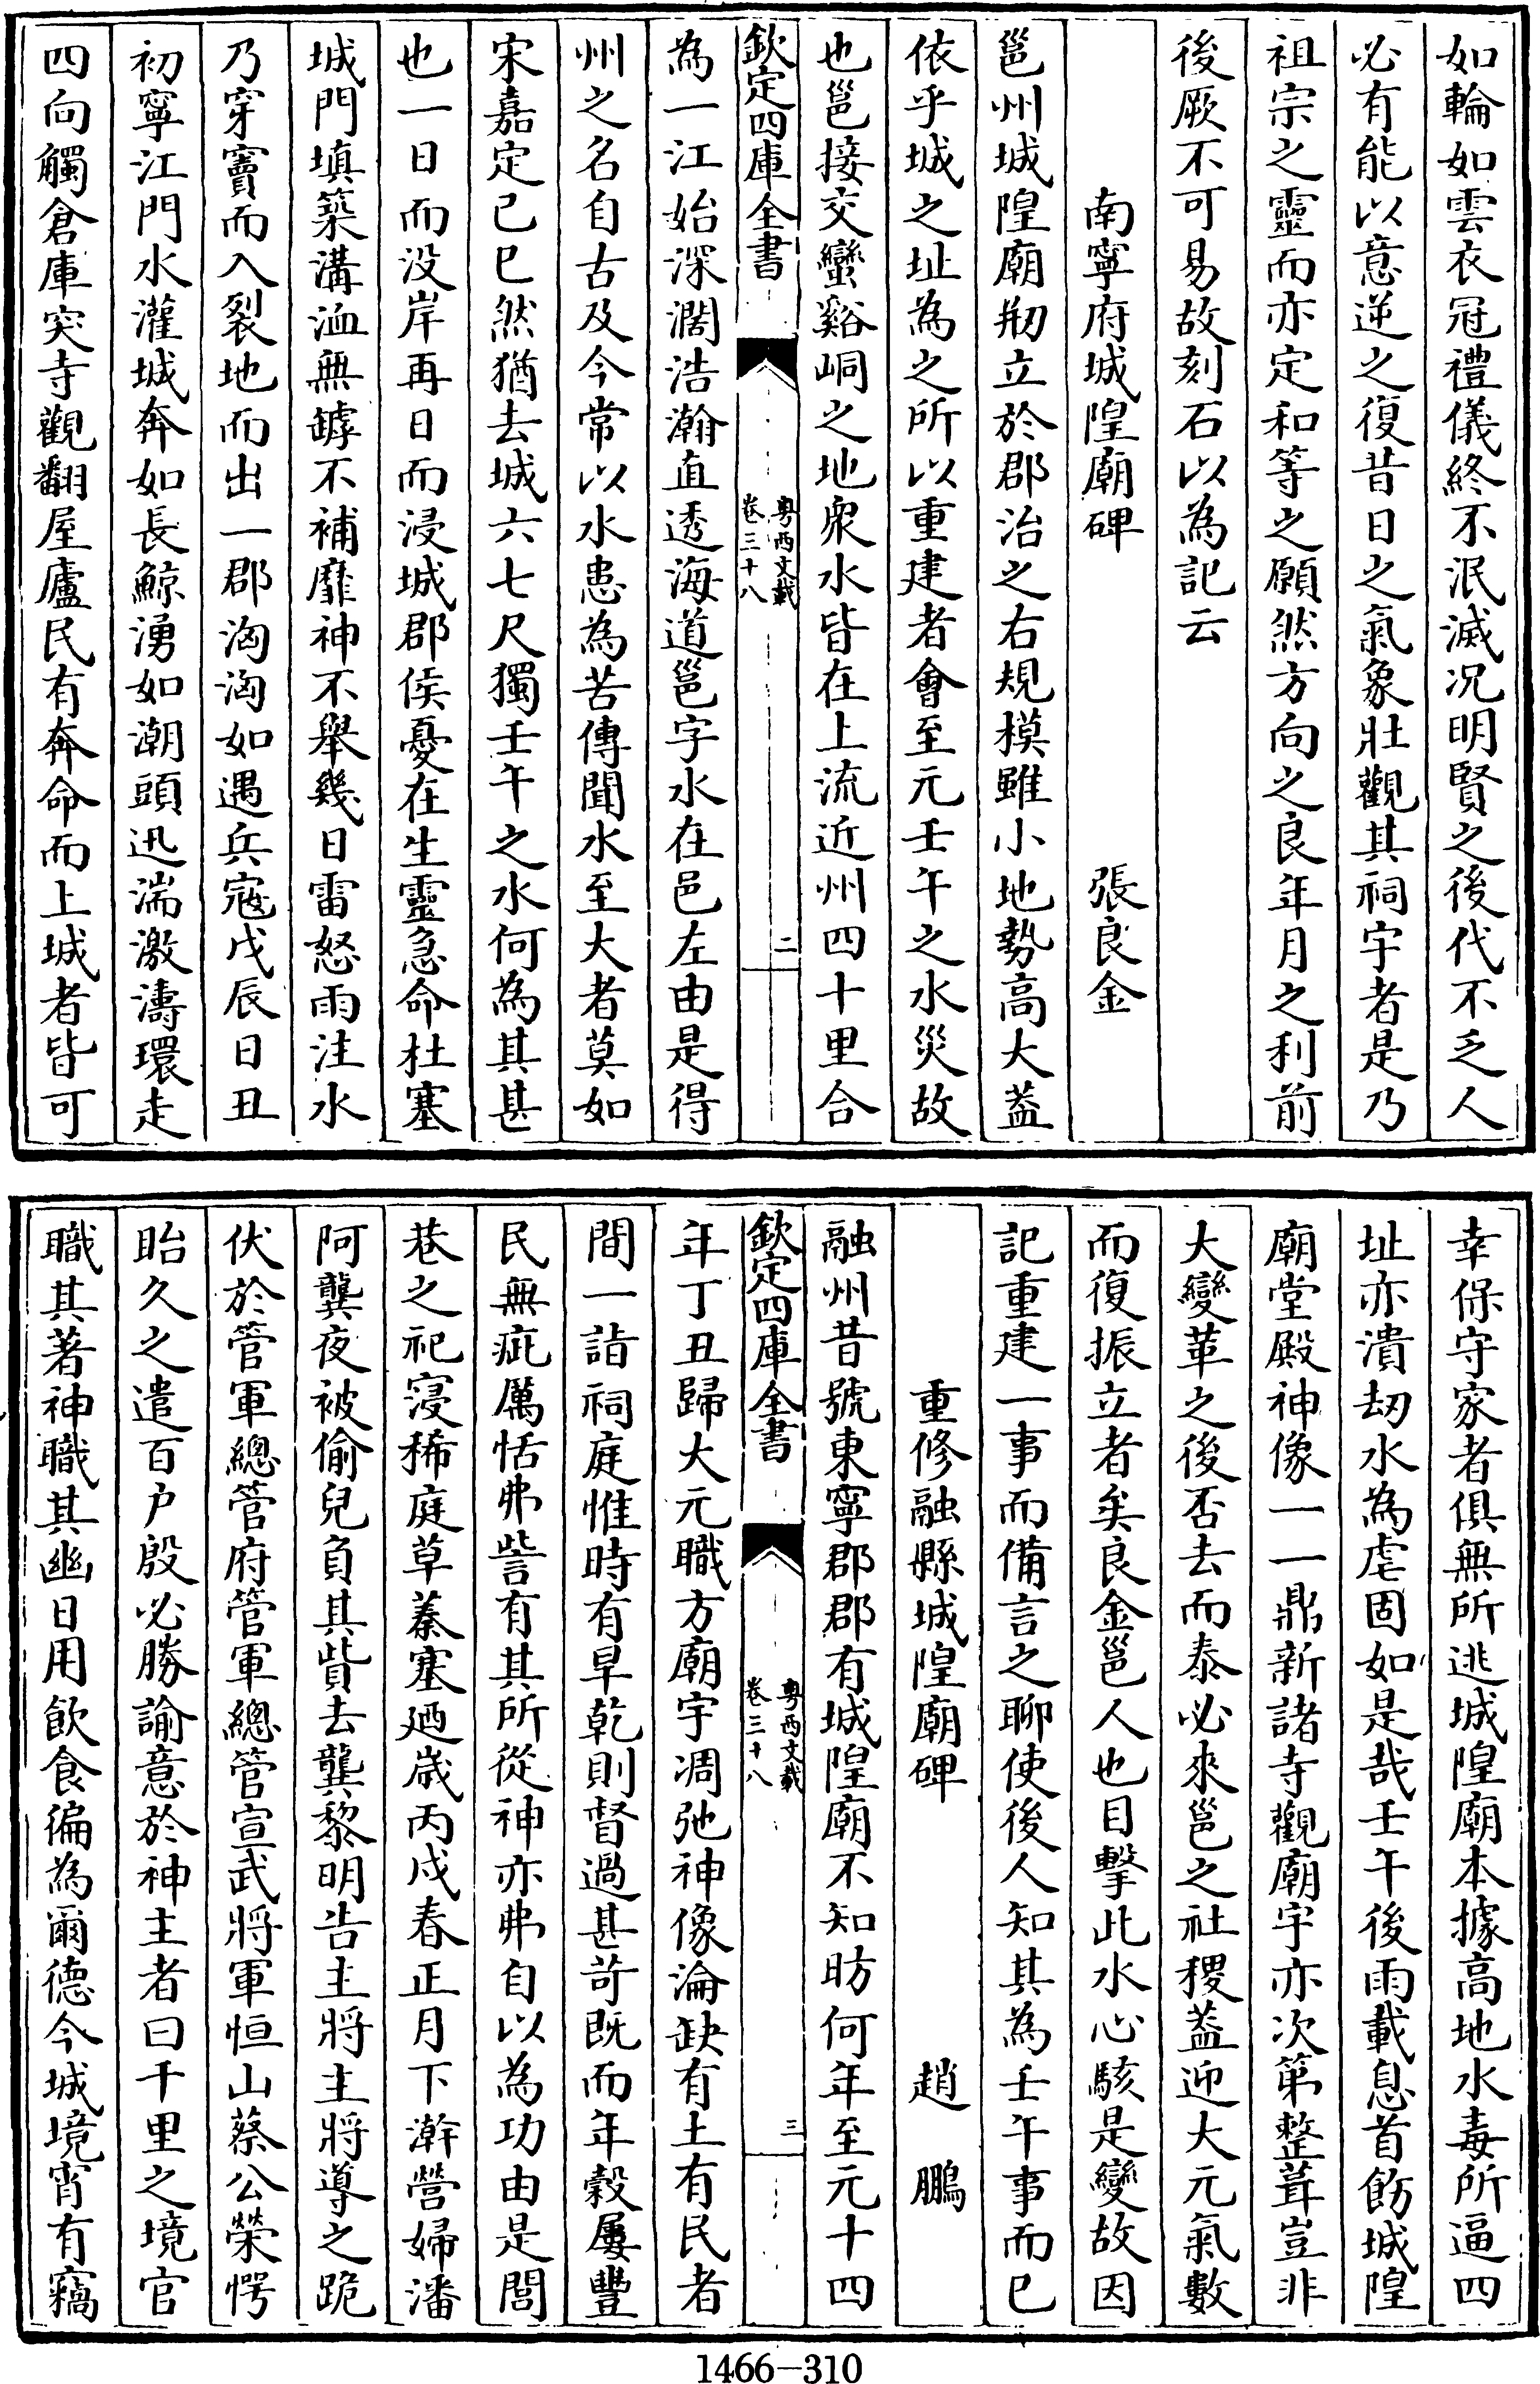 如輪如雲衣冠禮儀終不泯滅况明賢之後代不乏人
必有能以意逆之復昔日之氣象壯觀其祠宇者是乃
祖宗之靈而亦定和等之願然方向之良年月之利前
後厥不可易故刻石以為記云
南寧府城隍廟碑　張良金
邕州城隍廟剏立於郡治之右規模雖小地勢高大葢
依乎城之址為之所以重建者會至元壬午之水災故
也邕接交蠻谿峒之地衆水皆在上流近州四十里合
欽定四庫全書
粤西文載
卷三十八
二
為一江始深濶浩瀚直透海道邕字水在邑左由是得
州之名自古及今常以水患為苦傳聞水至大者莫如
宋嘉定己巳然猶去城六七尺獨壬午之水何為其甚
也一日而没岸再日而浸城郡侯憂在生靈急命杜塞
城門填築溝洫無罅不補靡神不舉幾日雷怒雨注水
乃穿竇而入裂地而出一郡洶洶如遇兵寇戊辰日丑
初寧江門水灌城奔如長鯨湧如潮頭迅湍激濤環走
四向觸倉庫突寺觀翻屋廬民有奔命而上城者皆可
幸保守家者俱無所逃城隍廟本據高地水毒所逼四
址亦潰刼水為虐固如是哉壬午後雨載息首飭城隍
廟堂殿神像一一鼎新諸寺觀廟宇亦次第整葺豈非
大變革之後否去而泰必來邕之社稷葢迎大元氣數
而復振立者矣良金邕人也目擊此水心駭是變故因
記重建一事而備言之聊使後人知其為壬午事而已
重修融縣城隍廟碑　趙鵬
融州昔號東寧郡郡有城隍廟不知昉何年至元十四
欽定四庫全書
粤西文載
卷三十八
三
年丁丑歸大元職方廟宇凋弛神像淪缺有土有民者
間一詣祠庭惟時有旱乾則督過甚苛既而年穀屢豐
民無疵厲恬弗訾有其所從神亦弗自以為功由是閭
巷之祀寖稀庭草蓁塞廼歲丙戌春正月下澣營婦潘
阿龔夜被偷兒負其貲去龔黎明告主將主將導之跪
伏於管軍總管府管軍總管宣武將軍恒山蔡公榮愕
眙久之遣百户殷必勝諭意於神主者曰千里之境官
職其著神職其幽日用飲食徧為爾德今城境宵有竊
1466-310